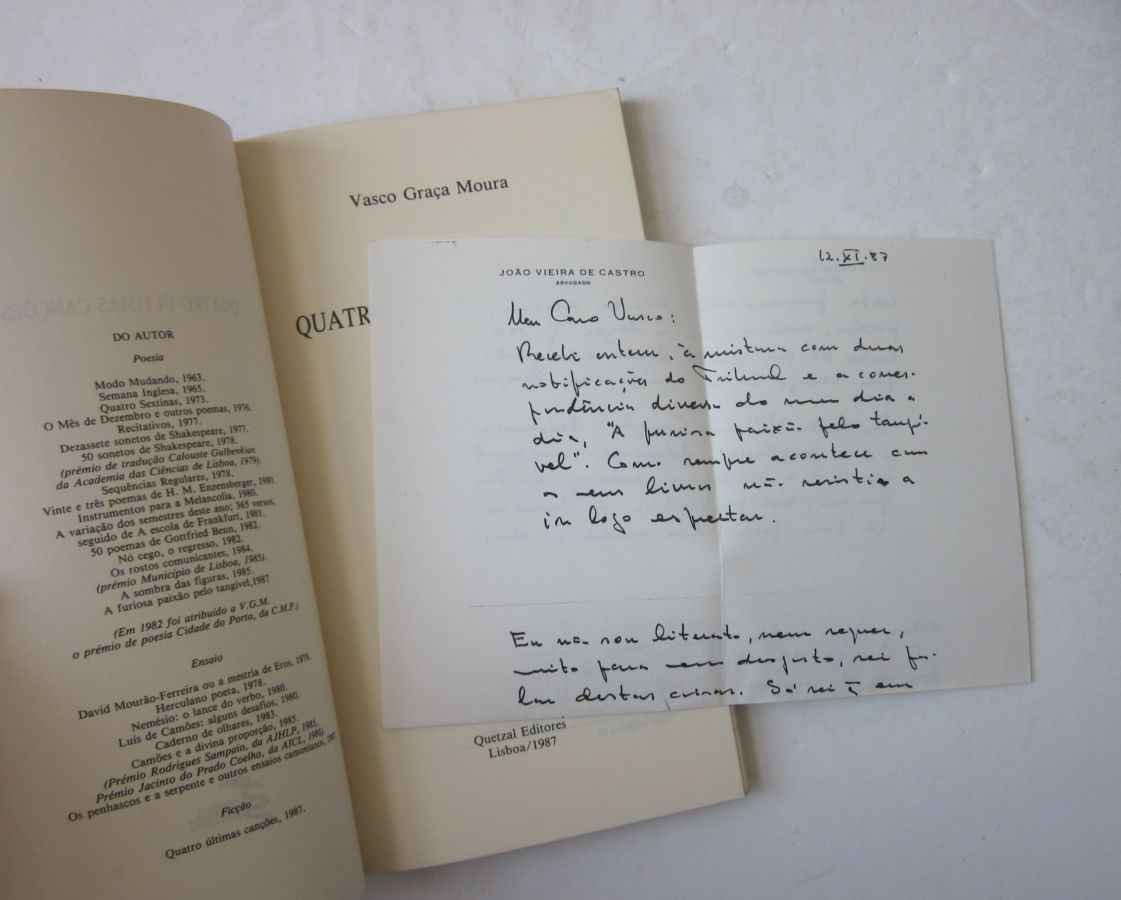 DO AUTOR
Poesia
Modo Mudando, 1963.
Semana Inglesa, 1965.
Quatro Sextinas, 1973.
O Mês de Dezembro e outros poemas, 1976.
Recitativos, 1977.
Dezassete sonetos de Shakespeare, 1977.
50 sonetos de Shakespeare, 1978.
(prémio de tradução Calouste Gulbenkian
da Academia das Ciências de Lisboa, 1979).
Sequências Regulares, 1978.
Vinte e três poemas de H. M. Enzensberger, 1980.
Instrumentos para a Melancolia, 1980.
A variação dos semestres deste ano; 365 versos,
seguido de A escola de Frankfurt, 1981.
50 poemas de Gottfried Benn, 1982.
Nó cego, o regresso, 1982.
Os rostos comunicantes, 1984.
(prémio Município de Lisboa, 1985).
A sombra das figuras, 1985.
A furiosa paixão pelo tangível,1987
(Em 1982 foi atribuído a V.G.M.
o prémio de poesia Cidade do Porto, da C.M.P.)
Ensaio
David Mourão-Ferreira ou a mestria de Eros, 1978.
Herculano poeta, 1978.
Nemésio: o lance do verbo, 1980.
Luís de Camões: alguns desafios, 1980.
Caderno de olhares, 1983.
Camões e a divina proporção, 1985.
(Prémio Rodrigues Sampaio, da AJHLP, 1985,
Prémio Jacinto do Prado Coelho, da AICL, 1986)
Os penhascos e a serpente e outros ensaios camonianos, 1987.
Ficção
Quatro últimas canções, 1987.
Vasco Graça Moura
QUATR
Quetzal Editores
Lisboa/1987
JOÃO VIEIRA DE CASTRO
ADVOGADO
12.XI.87
Meu Caro Vasco:
Recebi ontem, à mistura com duas
notificações do Tribunal e a corres-
pondência diversa do meu dia a
dia, "A furiosa paixão pelo tangí-
vel". Como sempre acontece com
os seus livros não resisti a
ir logo espreitar.
Eu não sou literato, nem sequer,
muito para meu desgosto, sei fa-
lar destas coisas. Só sei em